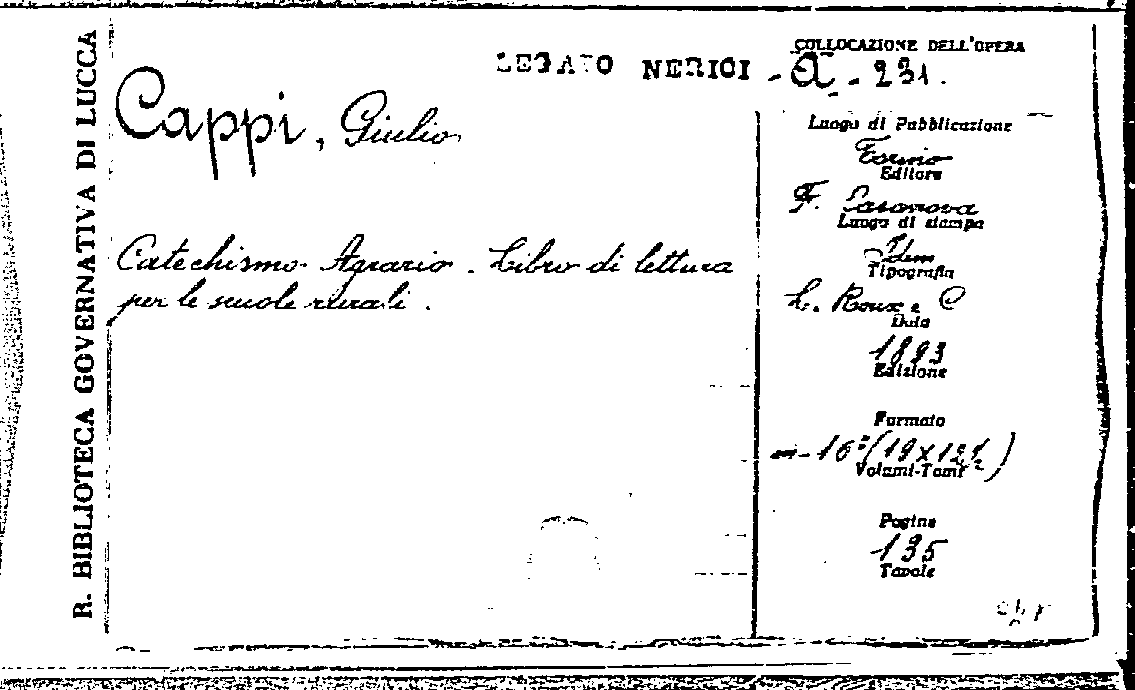 R. BIBLIOTECA GOVERNATIVA DI LUCCA
LEGATO NERICI
COLLOCAZIONE DELL'OPERA
- a - 231.
Cappi, Giulio
Catechismo Agrario. Libro di lettura
per le scuole rurali.
Luogo di Pubblicazione
Torino
Editore
F. Casanova
Luogo di stampa
Idem
Tipografia
L. Roux e C
Data
1893
Edizione
Formato
in-16º (19x12½)
Volumi-Tomi
Pagine
135
Tavole